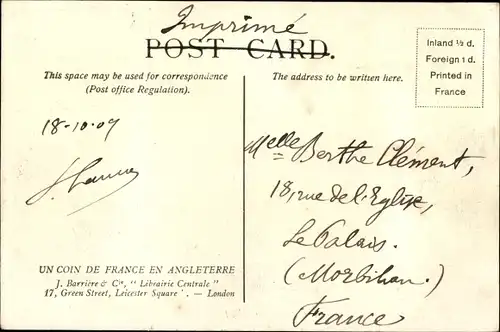 Imprimé
POST CARD.
This space may be used for correspondence
(Post office Regulation).
The address to be written here.
Inland ½ d.
Foreign 1 d.
Printed in
France
18-10-09
Melle Berthe Clément,
18, rue de l'Eglise,
Le Palais.
(Morbihan.)
France
UN COIN DE FRANCE EN ANGLETERRE
J. Barrière & Cie, " Librairie Centrale "
17, Green Street, Leicester Square. — London